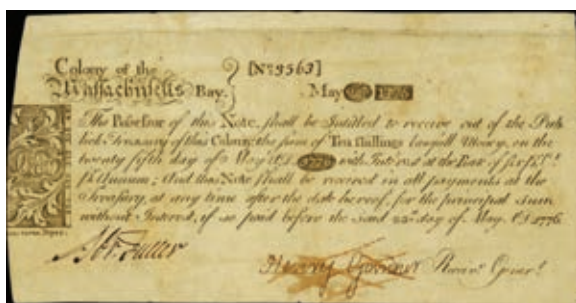 Colony of the
Massachusetts Bay. } [No 9563]
May 25 1775
The Possessor of this Note, shall be Intitled to receive out of the Pub
lick Treasury of this Colony, the sum of Ten Shillings Lawfull Money, on the
twenty fifth day of May AD. 1776 with Interest at the Rate of six P Ct.
P Annum; And this Note shall be received in all payments at the
Treasury, at any time after the date hereof, for the principal Sum
without Interest, if so paid before the said day of May AD 1776
Fuller
Henry Gardner Receivr. Genl.